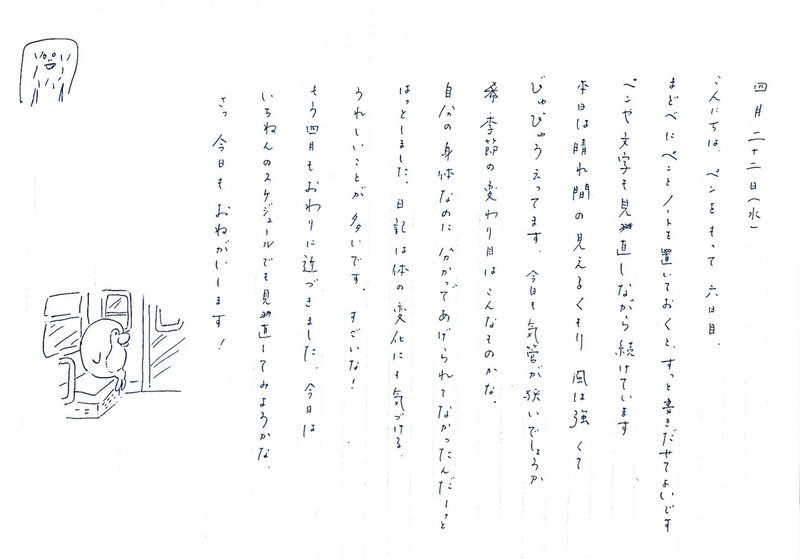 四月二十二日(水)
こんにちは、ペンをもって六日目、
まどべにペンとノートを置いておくと、すっと書きだせてよいです
ペンや文字も見直しながら続けています
本日は晴れ間の見えるくもり 風は強くて
びゅびゅう云ってます、今日も気管が狭いでしょうか
季節の変わり目はこんなものかな、
自分の身体なのに分かってあげられてなかったんだーっと
はっとしました、日記は体の変化にも気づける、
うれしいことが多いです、すごいな!
もう四月もおわりに近づきました、今日は
いちねんのスケジュールでも見直してみようかな、
さっ 今日もおねがいします!